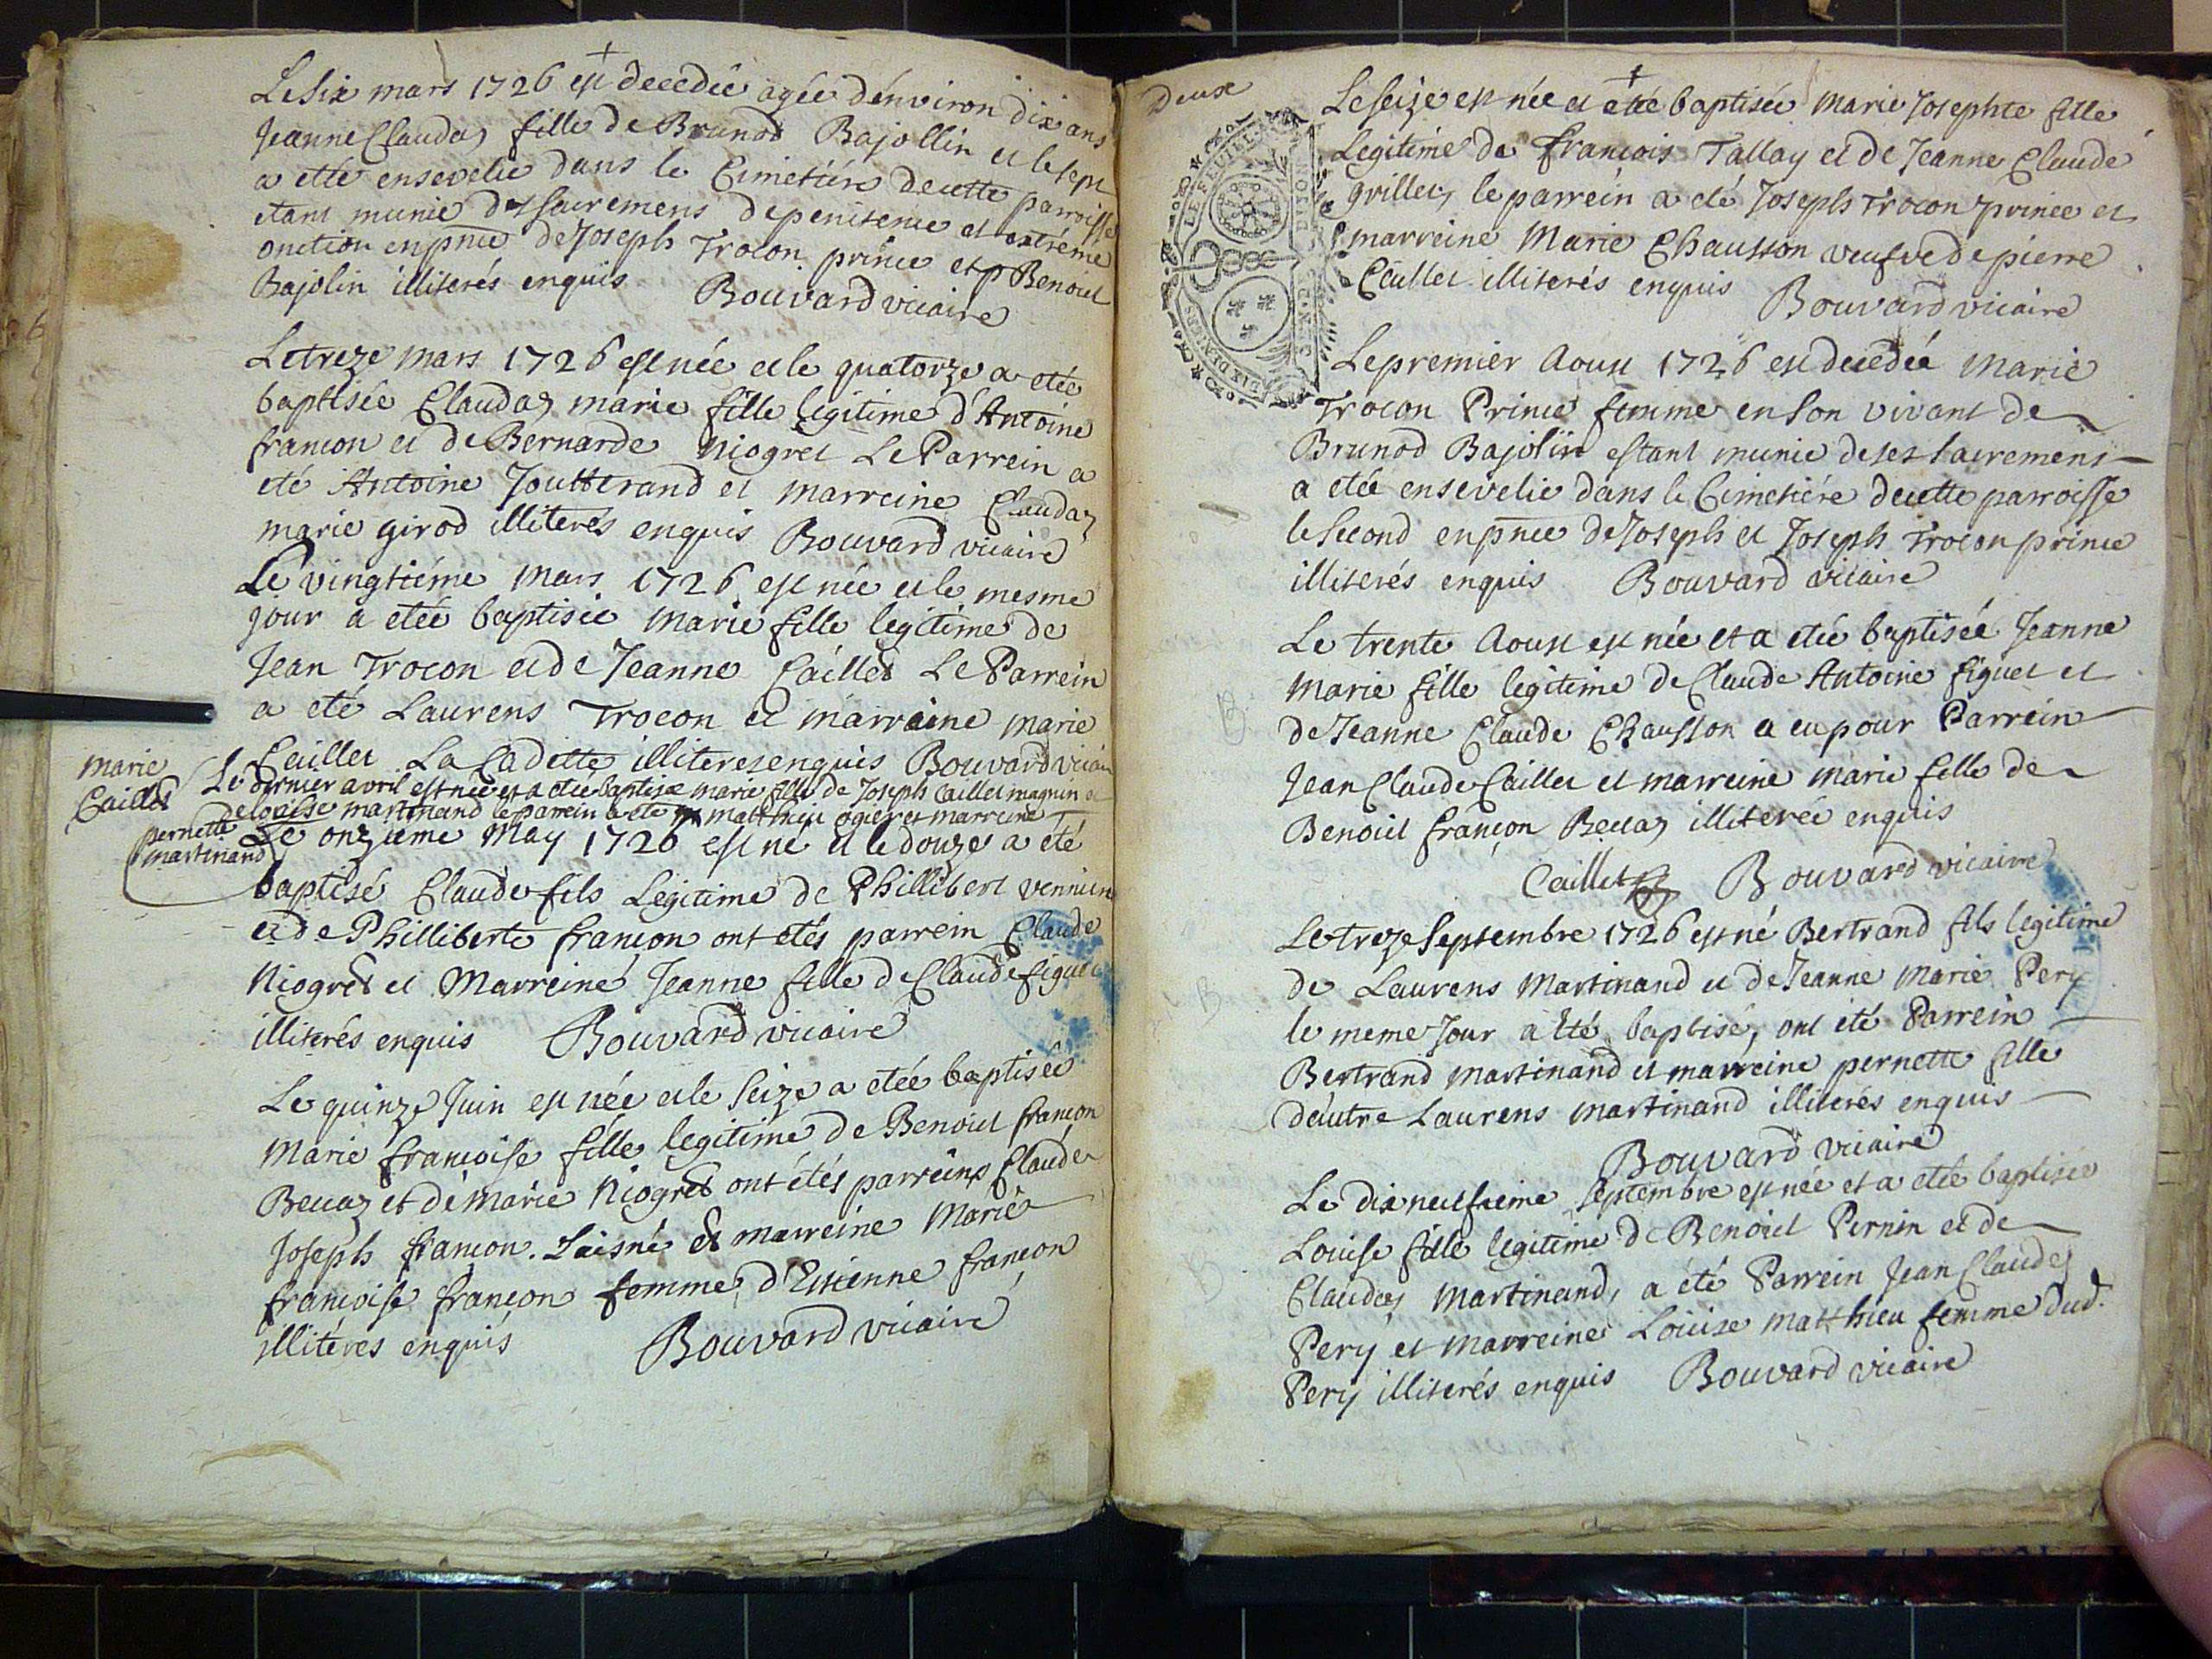 Le six mars 1726 est decedée agée d'environ dix ans
Jeanne Clauda fille de Brunod Bajollin et le sept
a etté ensevelie dans le Cimetiére de cette parroisse
etant munie des sacremens de penitence et extréme
onction en pnce de Joseph Trocon prince et Benoict
Bajolin illiterés enquis Bouvard vicaire
Le treze mars 1726 est née et le quatorze a etée
baptisée Clauday marie fille legitime d'Antoine
francon et de Bernarde Niogret Le Parrein a
eté Antoine Joutterand et marreine Clauday
marie girod illiterés enquis Bouvard vicaire
Le vingtiéme mars 1726 est née et le mesme
jour a etée baptisée Marie fille legitime de
Jean Trocon et de Jeanne Caillet Le Parrein
a eté Laurens Trocon et marraine marie
Caillet La Cadette illiteres enquis Bouvard vicaire
marie
Caillet
Le dernier avril est née et a etée baptisée marie fille de Joseph Caillet magnin et
de loaise martinand le parrein a ete matthieu ogier et marreine
pernette
martinand
Le onzieme May 1726 est né et le douze a eté
baptisé Claude fils Legitime de Phillibert vennien
et de Philliberte francon ont etés parrein Claude
Niogret et Marreiné Jeanne fille de Claude figuet
illiterés enquis Bouvard vicaire
Le quinze Juin est née et le seize a etée baptisée
Marie francoise fille legitime de Benoict francon
Beccaz et de Marie Niogret ont étés parreins Claude
Joseph francon. Laisné et marreine Marie
francoise francon femme d'Estienne francon
illitéres enquis Bouvard vicaire
Deuxe
LE FEUILLE
DIX DENIERS
Le seize est née et a eté baptisée Marie Josephte fille
Legitime de francois Tallay et de Jeanne Claude
grillet, le parrein a eté Joseph Trocon prince et
marreine Marie Chausson veufve de pierre
Caillet illiterés enquis Bouvard vicaire
Le premier Aoust 1726 est decedée Marie
Trocon Prince femme en son vivant de
Brunod Bajolin estant munie de ses sacremens
a etée ensevelie dans le Cimetiére de cette parroisse
le second en pnce de Joseph et Joseph Trocon prince
illiterés enquis Bouvard vicaire
Le trente Aoust est née et a etée baptisée Jeanne
Marie fille legitime de Claude Antoine figuet et
de Jeanne Claude Chausson a eu pour Parrein
Jean Claude Caillet et marreine marie fille de
Benoict françon Beccaz illiterée enquis
Caillet Bouvard vicaire
Le treze Septembre 1726 est né Bertrand fils legitime
de Laurens Martinand et de Jeanne Marie Pery
le meme Jour a eté baptisé, ont eté Parrein
Bertrand Martinand et marreine pernette fille
d'autre Laurens Martinand illiterés enquis
Bouvard vicaire
Le dix neufieme Septembre est née et a etée baptisée
Louise fille legitime de Benoict Pernin et de
Clauday Martinand, a eté Parrein Jean Claude
Pery et Marreine Louize Matthieu femme dud.
Pery illiterés enquis Bouvard vicaire